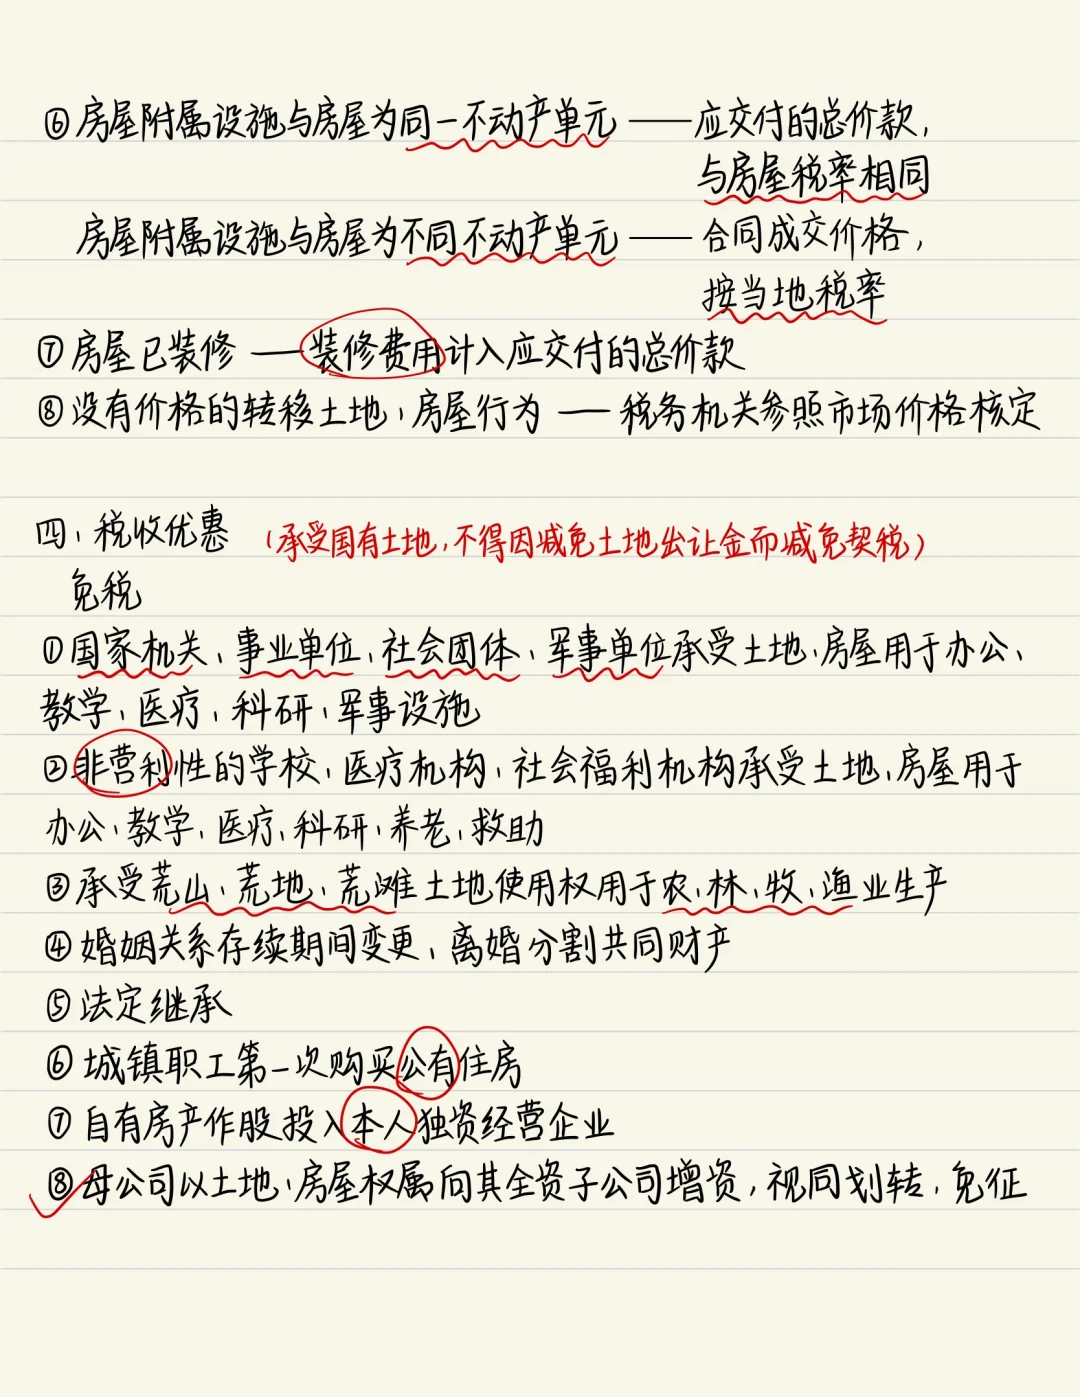 ⑥房屋附属设施与房屋为同一不动产单元——应交付的总价款,
与房屋税率相同
房屋附属设施与房屋为不同不动产单元——合同成交价格,
按当地税率
⑦房屋已装修——装修费用计入应交付的总价款
⑧没有价格的转移土地、房屋行为——税务机关参照市场价格核定
四、税收优惠 (承受国有土地,不得因减免土地出让金而减免契税)
免税
①国家机关、事业单位、社会团体、军事单位承受土地、房屋用于办公、
教学、医疗、科研、军事设施
②非营利性的学校、医疗机构、社会福利机构承受土地、房屋用于
办公、教学、医疗、科研、养老、救助
③承受荒山、荒地、荒滩土地使用权用于农、林、牧、渔业生产
④婚姻关系存续期间变更、离婚分割共同财产
⑤法定继承
⑥城镇职工第一次购买公有住房
⑦自有房产作股投入本人独资经营企业
⑧母公司以土地、房屋权属向其全资子公司增资,视同划转,免征